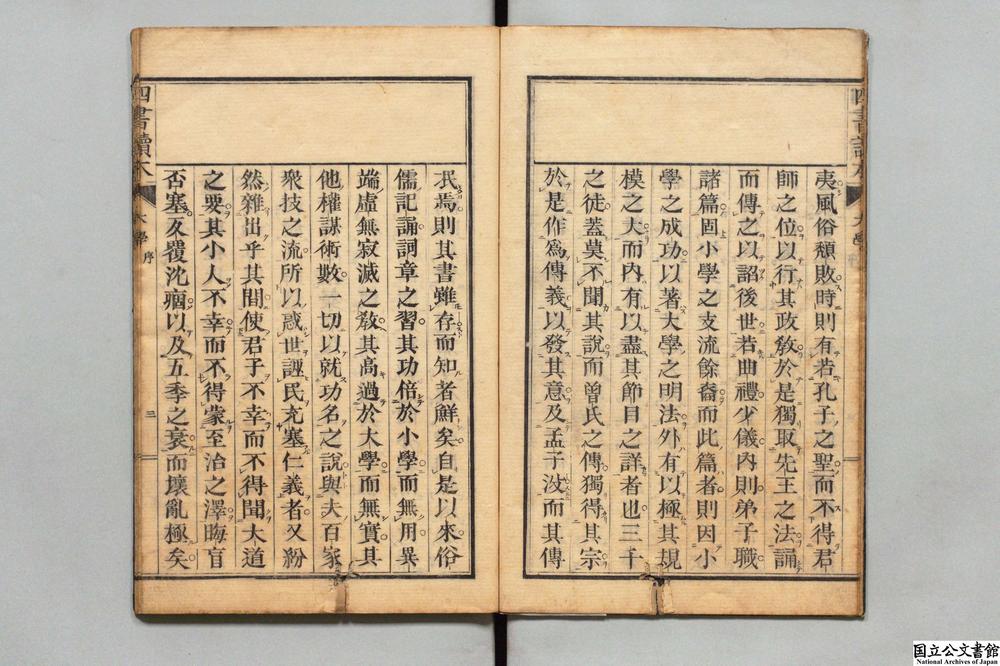 夷風俗頽敗時則有若孔子之聖而不得君
師之位以行其政敎於是獨取先王之法誦
而傳之以詔後世若曲禮少儀內則弟子職
諸篇固小學之支流餘裔而此篇者則因小
學之成功以著大學之明法外有以極其規
模之大而內有以盡其節目之詳者也三千
之徒蓋莫不聞其說而曾氏之傳獨得其宗
於是作爲傳義以發其意及孟子沒而其傳
泯焉則其書雖存而知者鮮矣自是以來俗
儒記誦詞章之習其功倍於小學而無用異
端虛無寂滅之敎其高過於大學而無實其
他權謀術數一切以就功名之說與夫百家
衆技之流所以惑世誣民充塞仁義者又紛
然雜出乎其閒使君子不幸而不得聞大道
之要其小人不幸而不得蒙至治之澤晦盲
否塞反覆沈痼以及五季之衰而壞亂極矣
四書讀本
大學
序
三
国立公文書館
National Archives of Japan